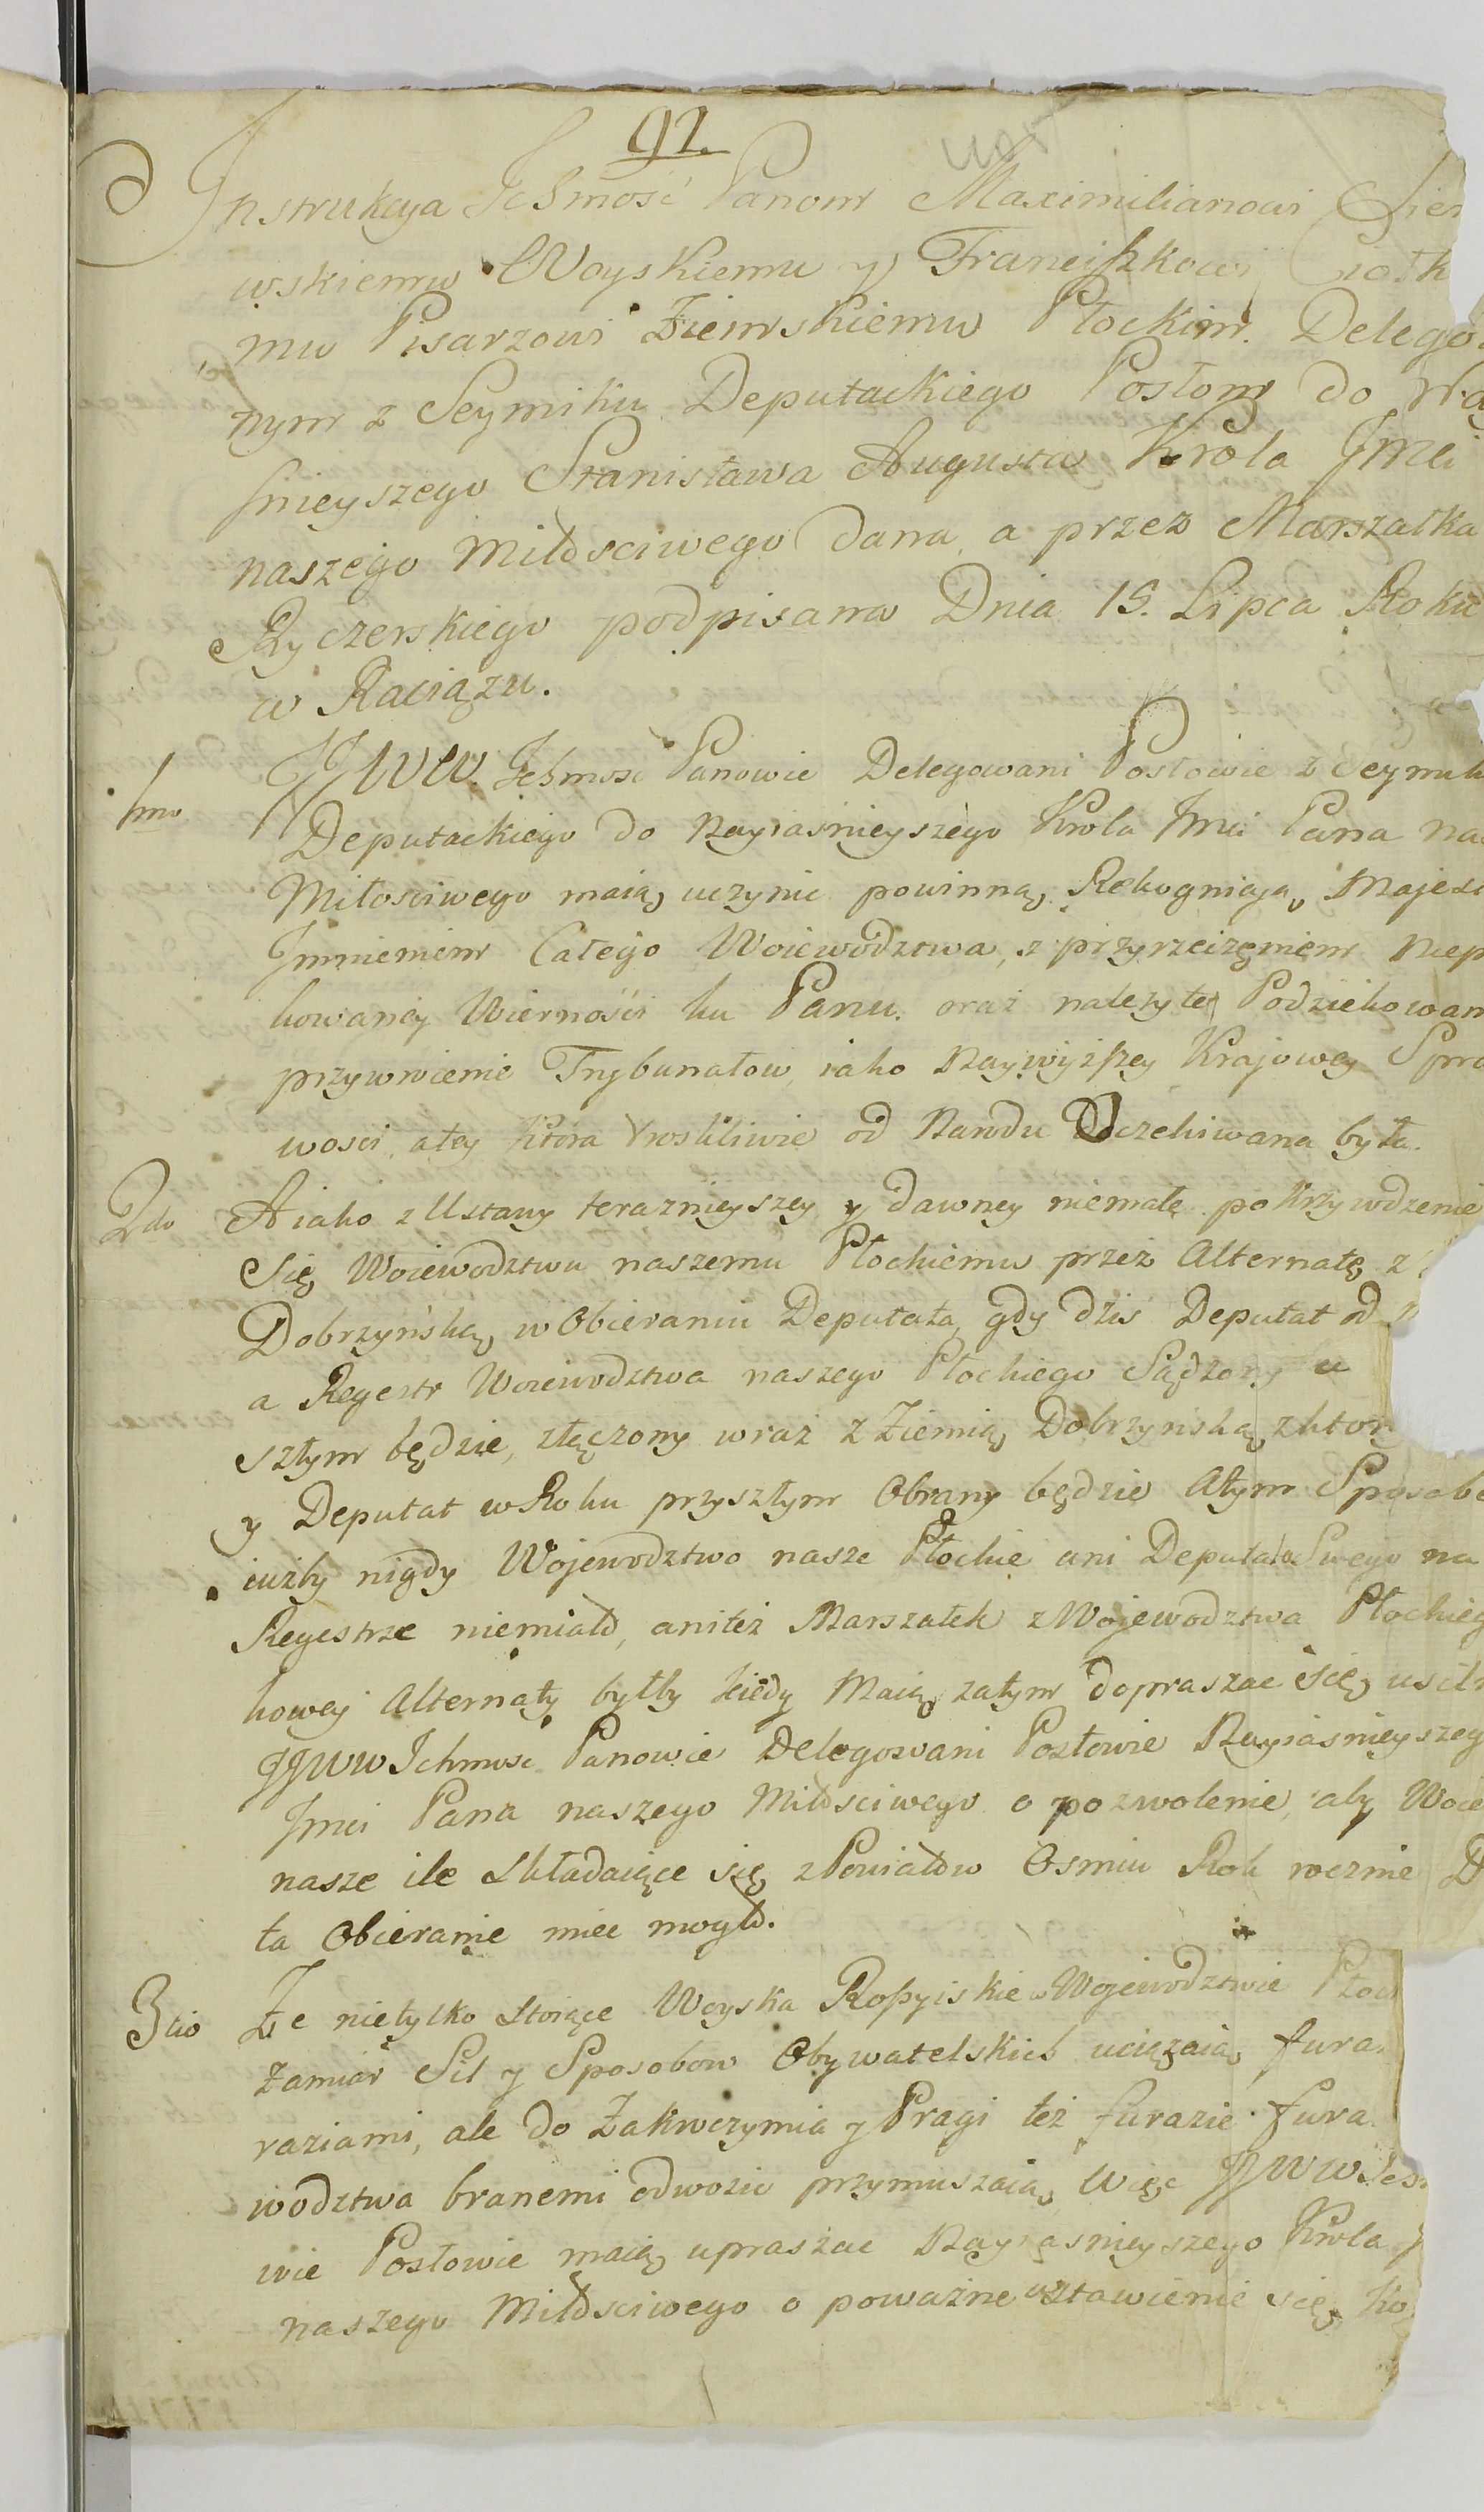 91.
Instrukcya Ichmość Panom Maximilianowi Sier
wskiemu Woyskiemu y Franciszkowi Ciołk
mu Pisarzowi Ziemskiemu Płockim. Delego
nym z Seymiku Deputackiego Posłom do Nay
śnieyszego Stanisława Augusta Krola Jmci
naszego Miłosciwego dana, a przez Marszałka
Rycerskiego podpisana Dnia 15. Lipca Roku
w Raciążu.
1mo JJWW. Ichmosc Panowie Delegowani Posłowie z Seymik
Deputackiego do Nayiaśnieyszego Krola Jmci Pana na
Miłosciwego maią uczynic powinną Rekognicyą, Majest
Jmmieniem Całego Woiewodztwa, z przyrzeczęniem niep
kowaney Wierności ku Panu. oraz należyte Podziekowan
przywrocenie Trybunałow, iako Naywyższey Krajowey Spra
wosci, atey ktora troskliwie od Narodu Oczekiwana była.
2do A iako z Ustawy terazniejszey y dawney niemałe pokrzywdzenie
Się Woiewodztwu naszemu Płockiemu przez Alternatę z
Dobrzyńską w Obieraniu Deputata, gdy dziś Deputat od
a Regestr Woiewodztwa naszego Płockiego Sądzony w
szłym będzie, złączony wraz z Ziemią Dobrzyńską, z ktor
y Deputat w Roku przyszłym Obrany będzie Atym Sposobe
iużby nigdy Wojewodztwo nasze Płockie ani Deputata Swego na
Regestrze niemiało, aniteż Marszałek z Wojewodztwa Płockieg
kowey Alternaty byłby kiedy Maią zatym dopraszac się usiln
JJWW Ichmosc Panowie Delegowani Posłowie Nayiasnieyszeg
Jmci Pana naszego Miłosciwego o pozwolenie, aby Woie
nasze ile Składaiące się z Powiatow Osmiu Rok rocznie D
ta Obieranie miec mogło.
3tio Że nietylko Stoiące Woyska Rossyiskie w Wojewodztwie Płoc
zamiar Sił y Sposobow Obywatelskich uciążaią fura
raziami, ale do Zakroczymia y Pragi też furazie fura
wodztwa branemi odwozic przymuszaią, Więc JJWW Ich
wie Posłowie maią upraszac Nayiasnieyszego Krola J
naszego Miłosciwego o poważne wstawienie się, ko